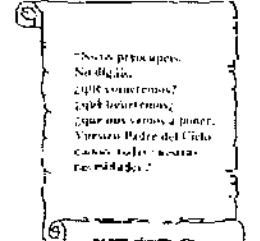 "No os preocupéis.
No digáis,
¿qué comeremos?
¿qué beberemos?
¿que nos vamos a poner?
Vuestro Padre del Cielo
conoce todas vuestras
necesidades."